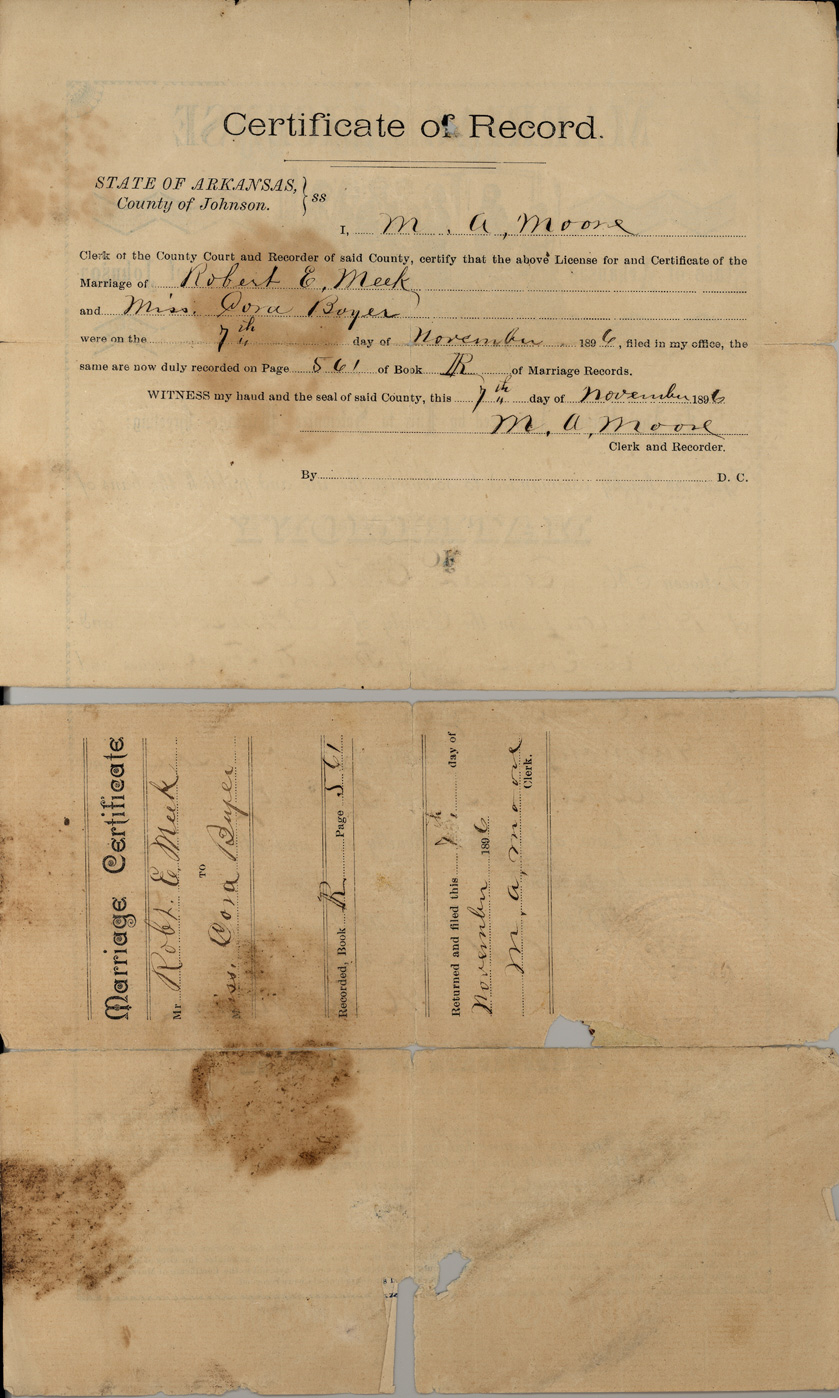 Certificate of Record.
STATE OF ARKANSAS,
County of Johnson. } ss
I, M. A, Moore
Clerk of the County Court and Recorder of said County, certify that the above License for and Certificate of the
Marriage of Robert E, Meek
and Miss. Dora Boyer
were on the 7th day of November 1896, filed in my office, the
same are now duly recorded on Page 561 of Book R of Marriage Records.
WITNESS my hand and the seal of said County, this 7th day of November 1896
M, A, Moore
Clerk and Recorder.
By D. C.
Marriage Certificate
Mr Robt. E. Meek
TO
Miss. Dora Boyer
Recorded, Book R Page 561
Returned and filed this 7th, day of
November 1896
M, A, Moore
Clerk.